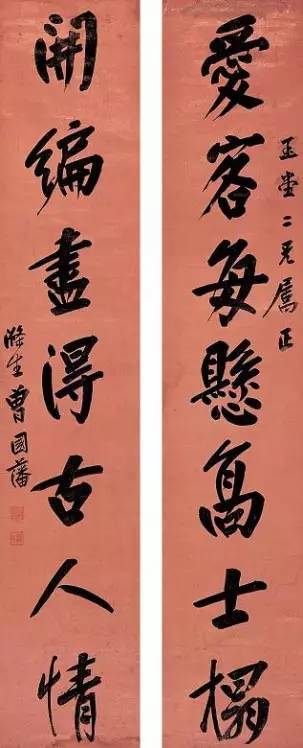 玉堂二兄屬正
愛客每懸高士榻
開編盡得古人情
滌生曾國藩